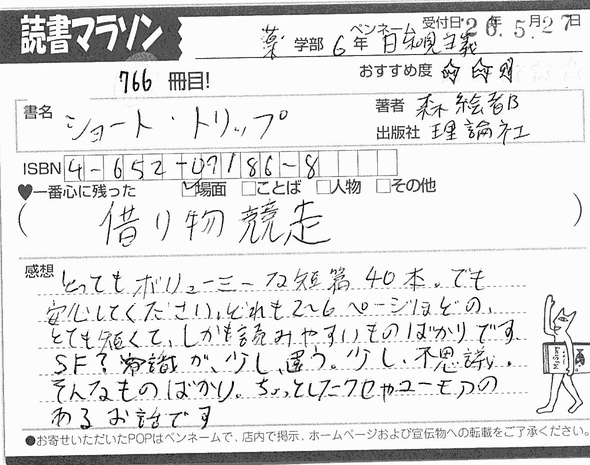 読書マラソン
受付日 26年 5月 27日
ペンネーム
薬 学部 6年 日和見主義
766 冊目!
おすすめ度 ☆☆☆
書名 ショート・トリップ
著者 森絵都
出版社 理論社
ISBN 4-652-07186-8
♥一番心に残った ☑場面 □ことば □人物 □その他
(借り物競走)
感想 とってもボリューミーな短篇40本。でも
安心してください。どれも2〜6ページほどの、
とても短くて、しかも読みやすいものばかりです。
SF?常識が、少し、違う。少し、不思議。
そんなものばかり。ちょっとしたクセやユーモアの
あるお話です
●お寄せいただいたPOPはペンネームで、店内で掲示、ホームページおよび宣伝物への転載をご了承ください。